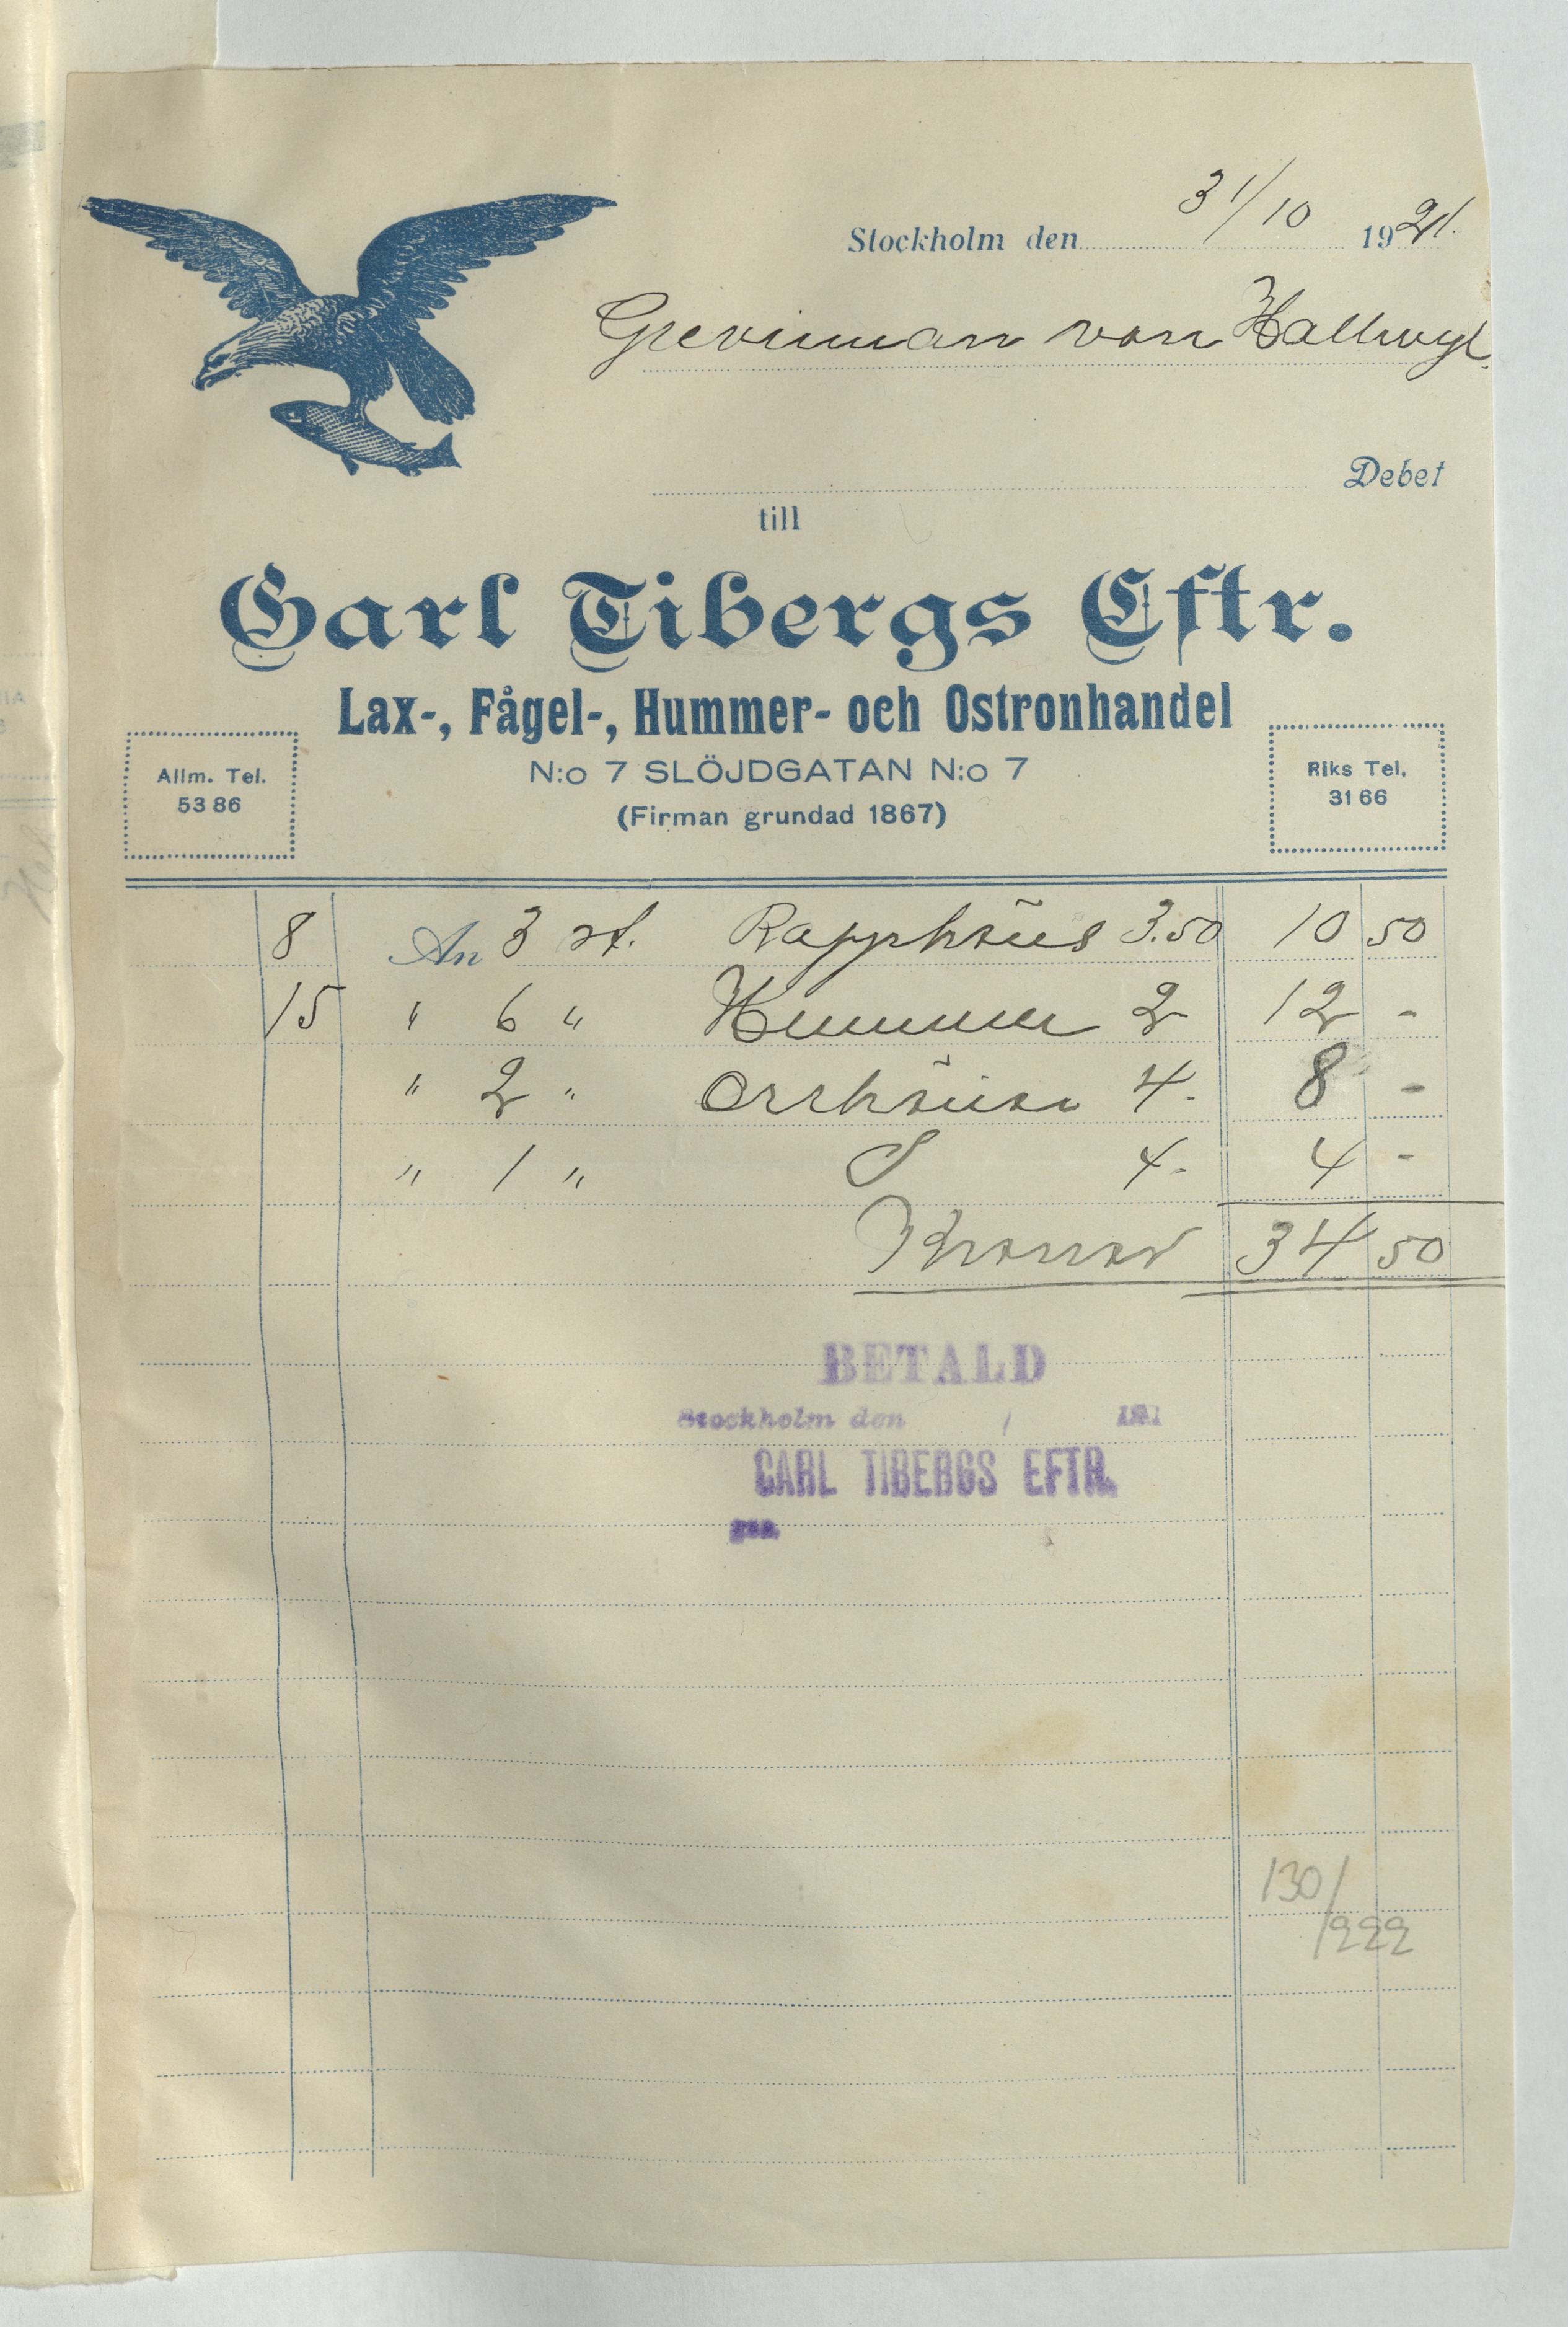 Stockholm den 31/10 1921.
Grevinnan von Hallwyl.
Debet
till
Carl Tibergs Eftr.
Lax-, Fågel-, Hummer- och Ostronhandel
N:o 7 SLÖJDGATAN N:o 7
(Firman grundad 1867)
Allm. Tel.
53 86
Riks Tel.
31 66
8 An 3 st. Rapphöns 3.50 10 50
15 " 6 " Hummer 2 12 -
" 2 " Orrhöns 4. 8 -
" 1 " 4- 4 -
Kronor 34 50
BETALD
Stockholm den / 191
CARL TIBERGS EFTR.
130/222